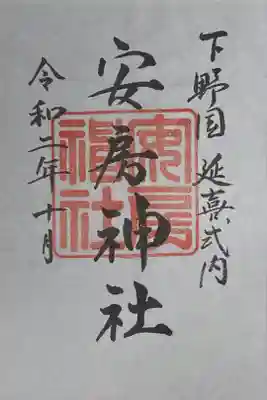 下野国 延喜式内
安房神社
安房神社
令和二年十月